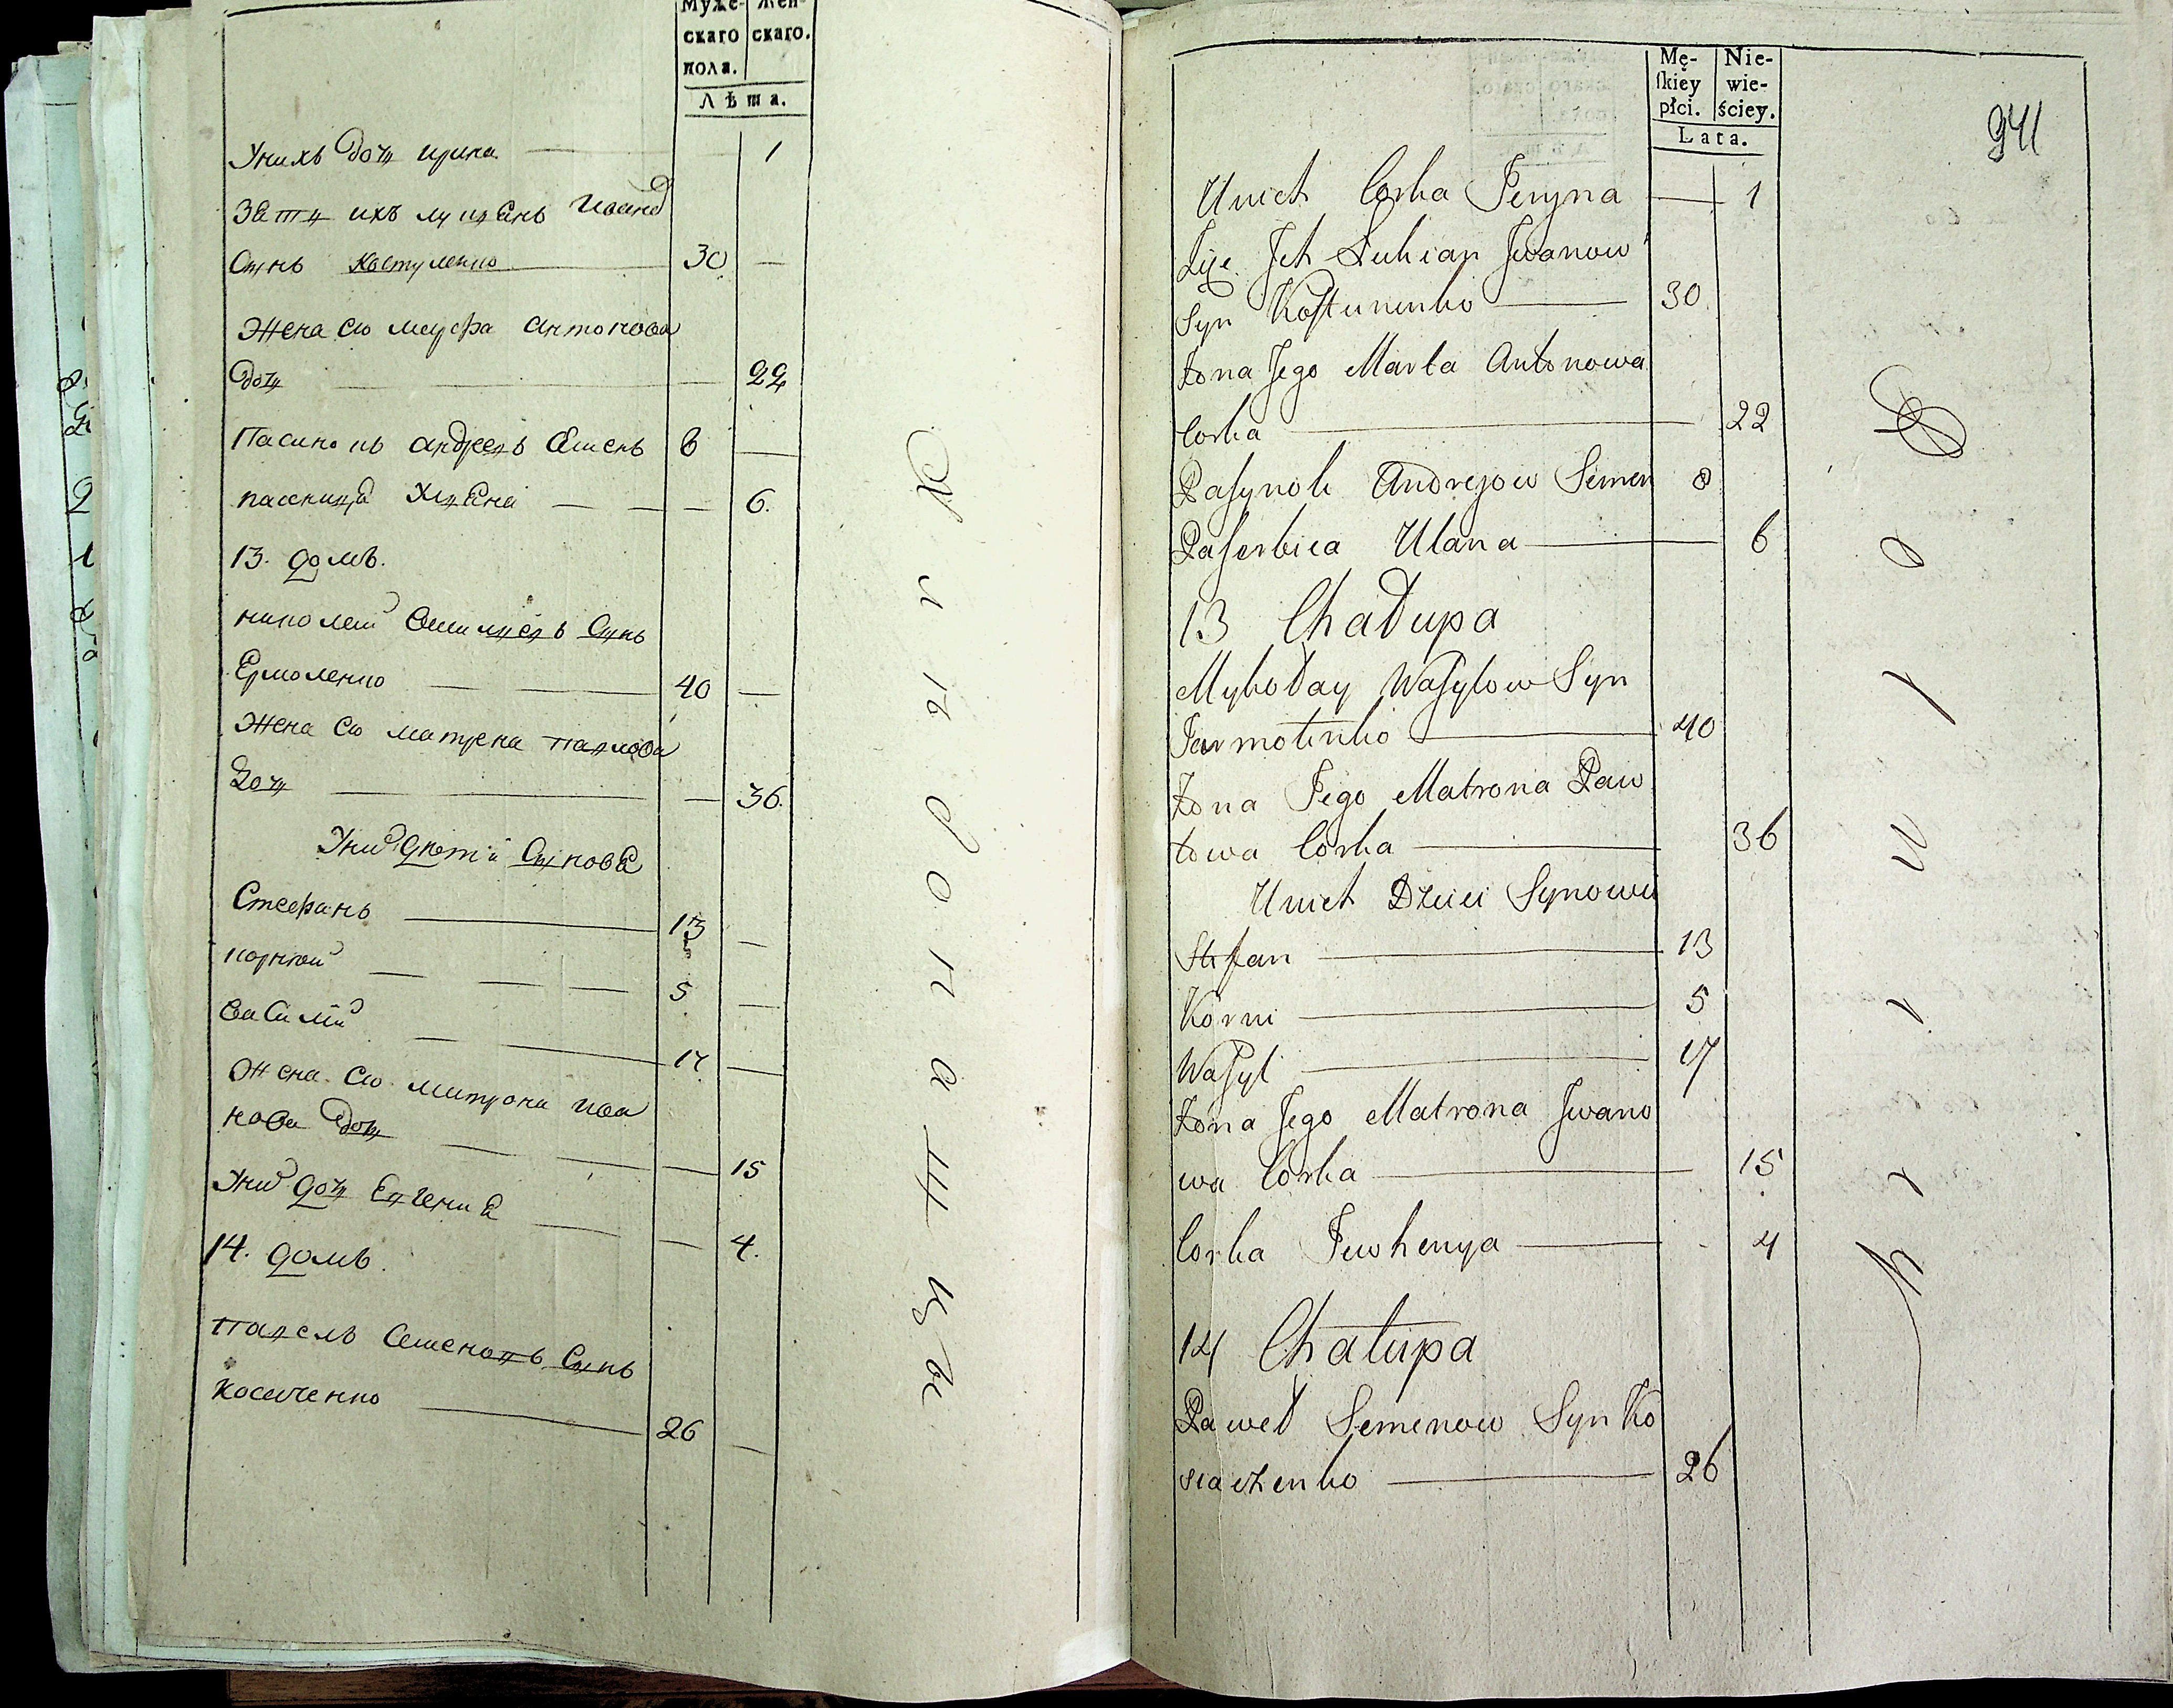 Муже-
скаго
пола.
Жен-
скаго.
Лѣта.
Унихъ дочь ирина — 1
Зять ихъ лукянъ Иванов
Сынъ Костуленко — 30 —
Жена его марфа антонова
дочь — 22
Пасинокъ андреевъ Семенъ 8 —
пасиница Уляна — 6.
13. домъ.
николай Василиевъ Сынъ
Ермоленко — 40 —
Жена его матрена павлова
Дочь — 36.
Уних дети Сыновя
Стефанъ — 13 —
корней — 5 —
Василий — 17 —
Жена его матрона ива
нова дочь — 15
Уних дочь Евгения — 4.
14. домъ.
павелъ Семеновъ Сынъ
Косяченко — 26 —
Mę-
ſkiéy
płci.
Nie-
wie-
ściey.
Lata.
941
Unich Corka Jeryna — 1
Zięć Jch Lukian Jwanow
Syn Kostunenko — 30.
Żona Jego Marta Antonowa
Corka — 22
Pasynok Andrejow Semen 8
Paserbica Ulana — 6
13 Chałupa
Mykołay Wasylow Syn
Jarmolenko — 40
Żona Jego Matrona Paw
łowa Corka — 36
Unich Dzieci Synowie
Stefan — 13
Korni — 5
Wasyl — 17
Żona Jego Matrona Jwano
wa Corka — 15
Corka Jewhenya — 4
14 Chałupa
Paweł Semenow Syn Ko
siaczenko — 26